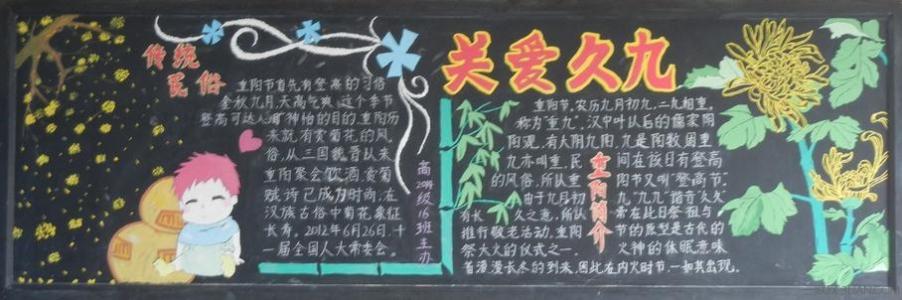 传统
民俗
重阳节首先有登高的习俗
金秋九月,天高气爽,这个季节
登高可达人"相"神怡的目的.重阳历
来就有赏菊花的风
俗,从三国魏晋以来
重阳聚会饮酒,赏菊
赋诗已成为时尚.在
汉族古俗中菊花象征
长寿。2012年6月26日.十
一届全国人大常委会。
高2014级16班主办
关爱久九
重阳节,农历九月初九,二九相重,
称为"重九"。汉中叶以后的儒家阴
阳观,有六阴九阳.九是阳数因重
九亦叫重 民间在该日有登高
的风俗,所以重阳节又叫"登高节".
由于九月初九"九九"谐音"久久"
有长久之意,所以常在此日祭祖与
推行敬老活动.重阳节的原型是古代的
祭大火的仪式之一.火神的休眠意味
着漫漫长冬的到来,因此在内火时节,一如其出现。
重阳简介